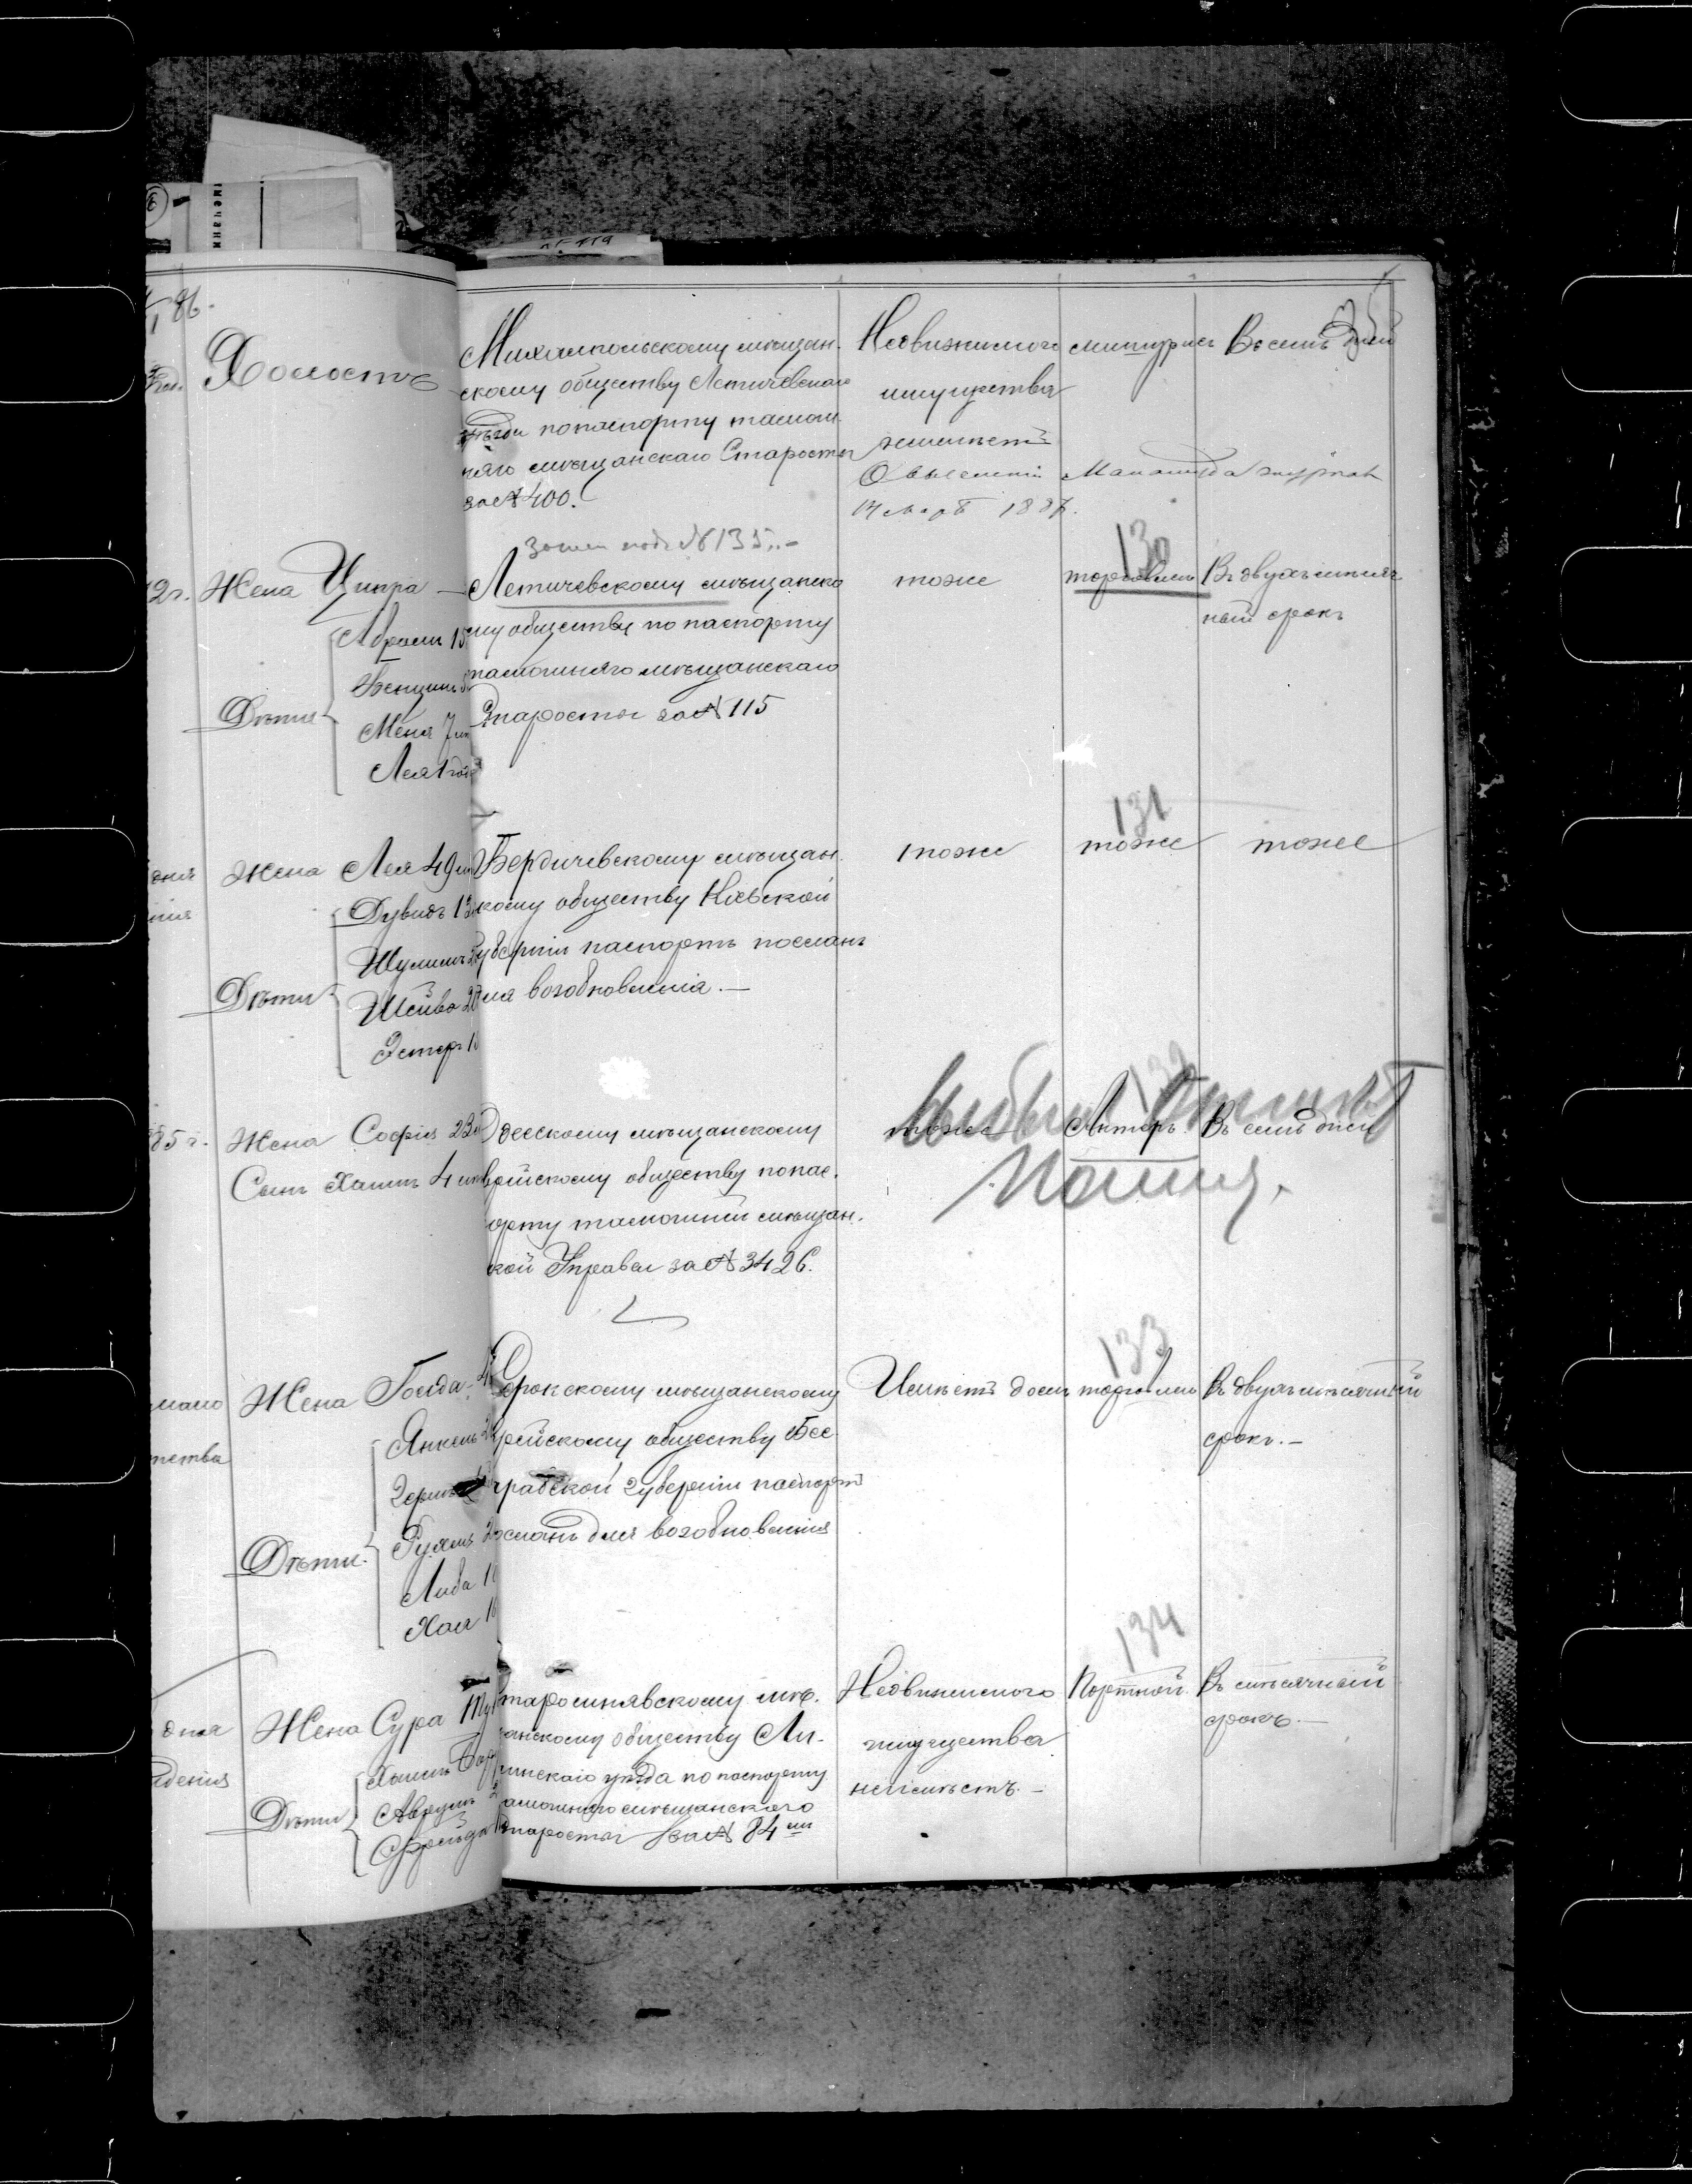 86.
Холостъ
Михампольскому мѣщан-
скому обществу Летичевскаго
уѣзда по паспорту тамош-
няго мѣщанскаго Старосты
за № 400.
Недвижимаго
имущества
неимѣетъ
Въ семь дней
О выселеніи
14 Март 1887.
подъ № 135.
2 г. Жена Ципра
Дѣти
Абрамъ 15
Бенцинъ
Меня 7
Лея 1 годъ
Летичевскому мѣщанско
му обществу по паспорту
тамошняго мѣщанскаго
Старосты за № 115
тоже
130
торговлей
Въ двухъмѣсяч
ный срокъ
Жена Лея 49
Дѣти
Дувидъ 13
Шулимъ
Шейва 20
Эстеръ 1
Бердичевскому мѣщан-
скому обществу Кіевской
губерніи паспортъ посланъ
для возобновленія. —
тоже
131
тоже
тоже
85 г. Жена Софія 23
Сынъ Хаимъ 4
Одесскому мѣщанскому
еврейскому обществу по пас-
орту тамошней мѣщан-
ской Управы за № 3426.
тоже
132
Актеръ
Въ семь дней
выбылъ
Жена Голда
Дѣти
Янкель
Рухля
Либа 1
Хая 1
Сорокскому мѣщанскому
еврейскому обществу Бес
арабской губерніи паспортъ
посланъ для возобновленія
Имѣетъ домъ
133
торговлей
Въ двухъмѣсячный
срокъ. —
134
дня
Жена Сура
Дѣти
Хаимъ
Аврумъ
Фрейда
Старосинявскому мѣ-
щанскому обществу Ли-
тинскаго уѣзда по паспорту
тамошняго мѣщанскаго
Старосты за № 84
Недвижимаго
имущества
неимѣетъ. —
Портной
Въ мѣсячный
срокъ. —